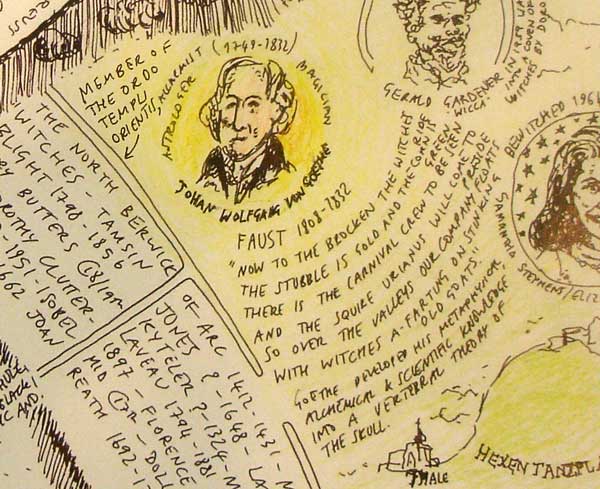 MEMBER OF
THE ORDO
TEMPLI
ORIENTIS,
ASTROLOGER ALCHEMIST (1749-1832) MAGICIAN
JOHAN WOLFGANG VON GOETHE
FAUST 1808-1832
"NOW TO THE BROCKEN THE WITCHES RIDE
THE STUBBLE IS GOLD AND THE CORN IS GREEN
THERE IS THE CARNIVAL CREW TO BE SEEN
AND THE SQUIRE URIANUS WILL COME TO PRESIDE
SO OVER THE VALLEYS OUR COMPANY FLOATS
WITH WITCHES A-FARTING ON STINKING OLD GOATS.
GOETHE DEVELOPED HIS METAPHYSICAL
ALCHEMICAL & SCIENTIFIC KNOWLEDGE
INTO A VERTEBRAL THEORY OF
THE SKULL.
GERALD GARDENER
WICCA
IN 1939 WA
INTO A COVEN OF
WITCHES BY DORO
BEWITCHED 1964
SAMANTHA STEPHENS/ELIZ
THE NORTH BERWICK
WITCHES TAMSIN
BLIGHT 1798-1856
BUTTERS
DOROTHY CLUTTER-
-1951-ISOBEL
1662 JOAN
OF ARC 1412-1431-M
JONES ?-1648-LA
KYTELER ?-1324-M
LAVEAU 1794-1881
1897-FLORENCE
MID C17-DOLL
REATH 1692-1
THALE
HEXENTANZPLA